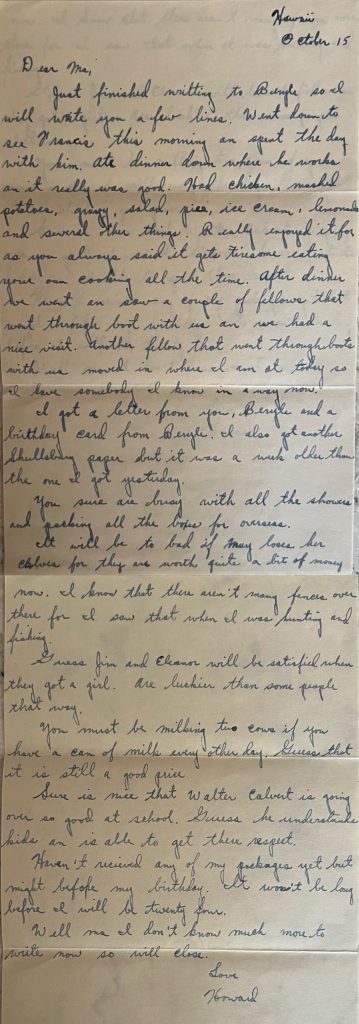 Hawaii
October 15
Dear Ma,
Just finished writting to Beryle so I
will write you a few lines. Went down to
see Francis this morning an spent the day
with him. Ate dinner down where he works
an it really was good. Had chicken, mashed
potatoes, gravy, salad, pies, ice cream, lemonade
and several other things. Really enjoyed it for
as you always said it gets tiresome eating
your own cooking all the time. After dinner
we went an saw a couple of fellows that
went through boot with us an we had a
nice visit. Another fellow that went through boots
with us moved in where I am at today so
I have somebody I know in a way now.
I got a letter from you, Beryle and a
birthday card from Beryle. I also got another
Shullsburg paper but it was a week older than
the one I got yesterday.
You sure are busy with all the showers
and packing all the boxes for overseas.
It will be to bad if May loses her
calves for they are worth quite a bit of money
now. I know that there aren't many fences over
there for I saw that when I was hunting and
fishing.
Guess Jim and Eleanor will be satisfied when
they got a girl. Are luckier than some people
that way.
You must be milking two cows if you
have a can of milk every other day. Guess that
it is still a good price
Sure is nice that Walter Calvert is going
over so good at school. Guess he understands
kids an is able to get there respect.
Haven't recieved any of my packages yet but
might before my birthday. It won't be long
before I will be twenty four.
Well ma I don't know much more to
write now so will close.
Love
Howard